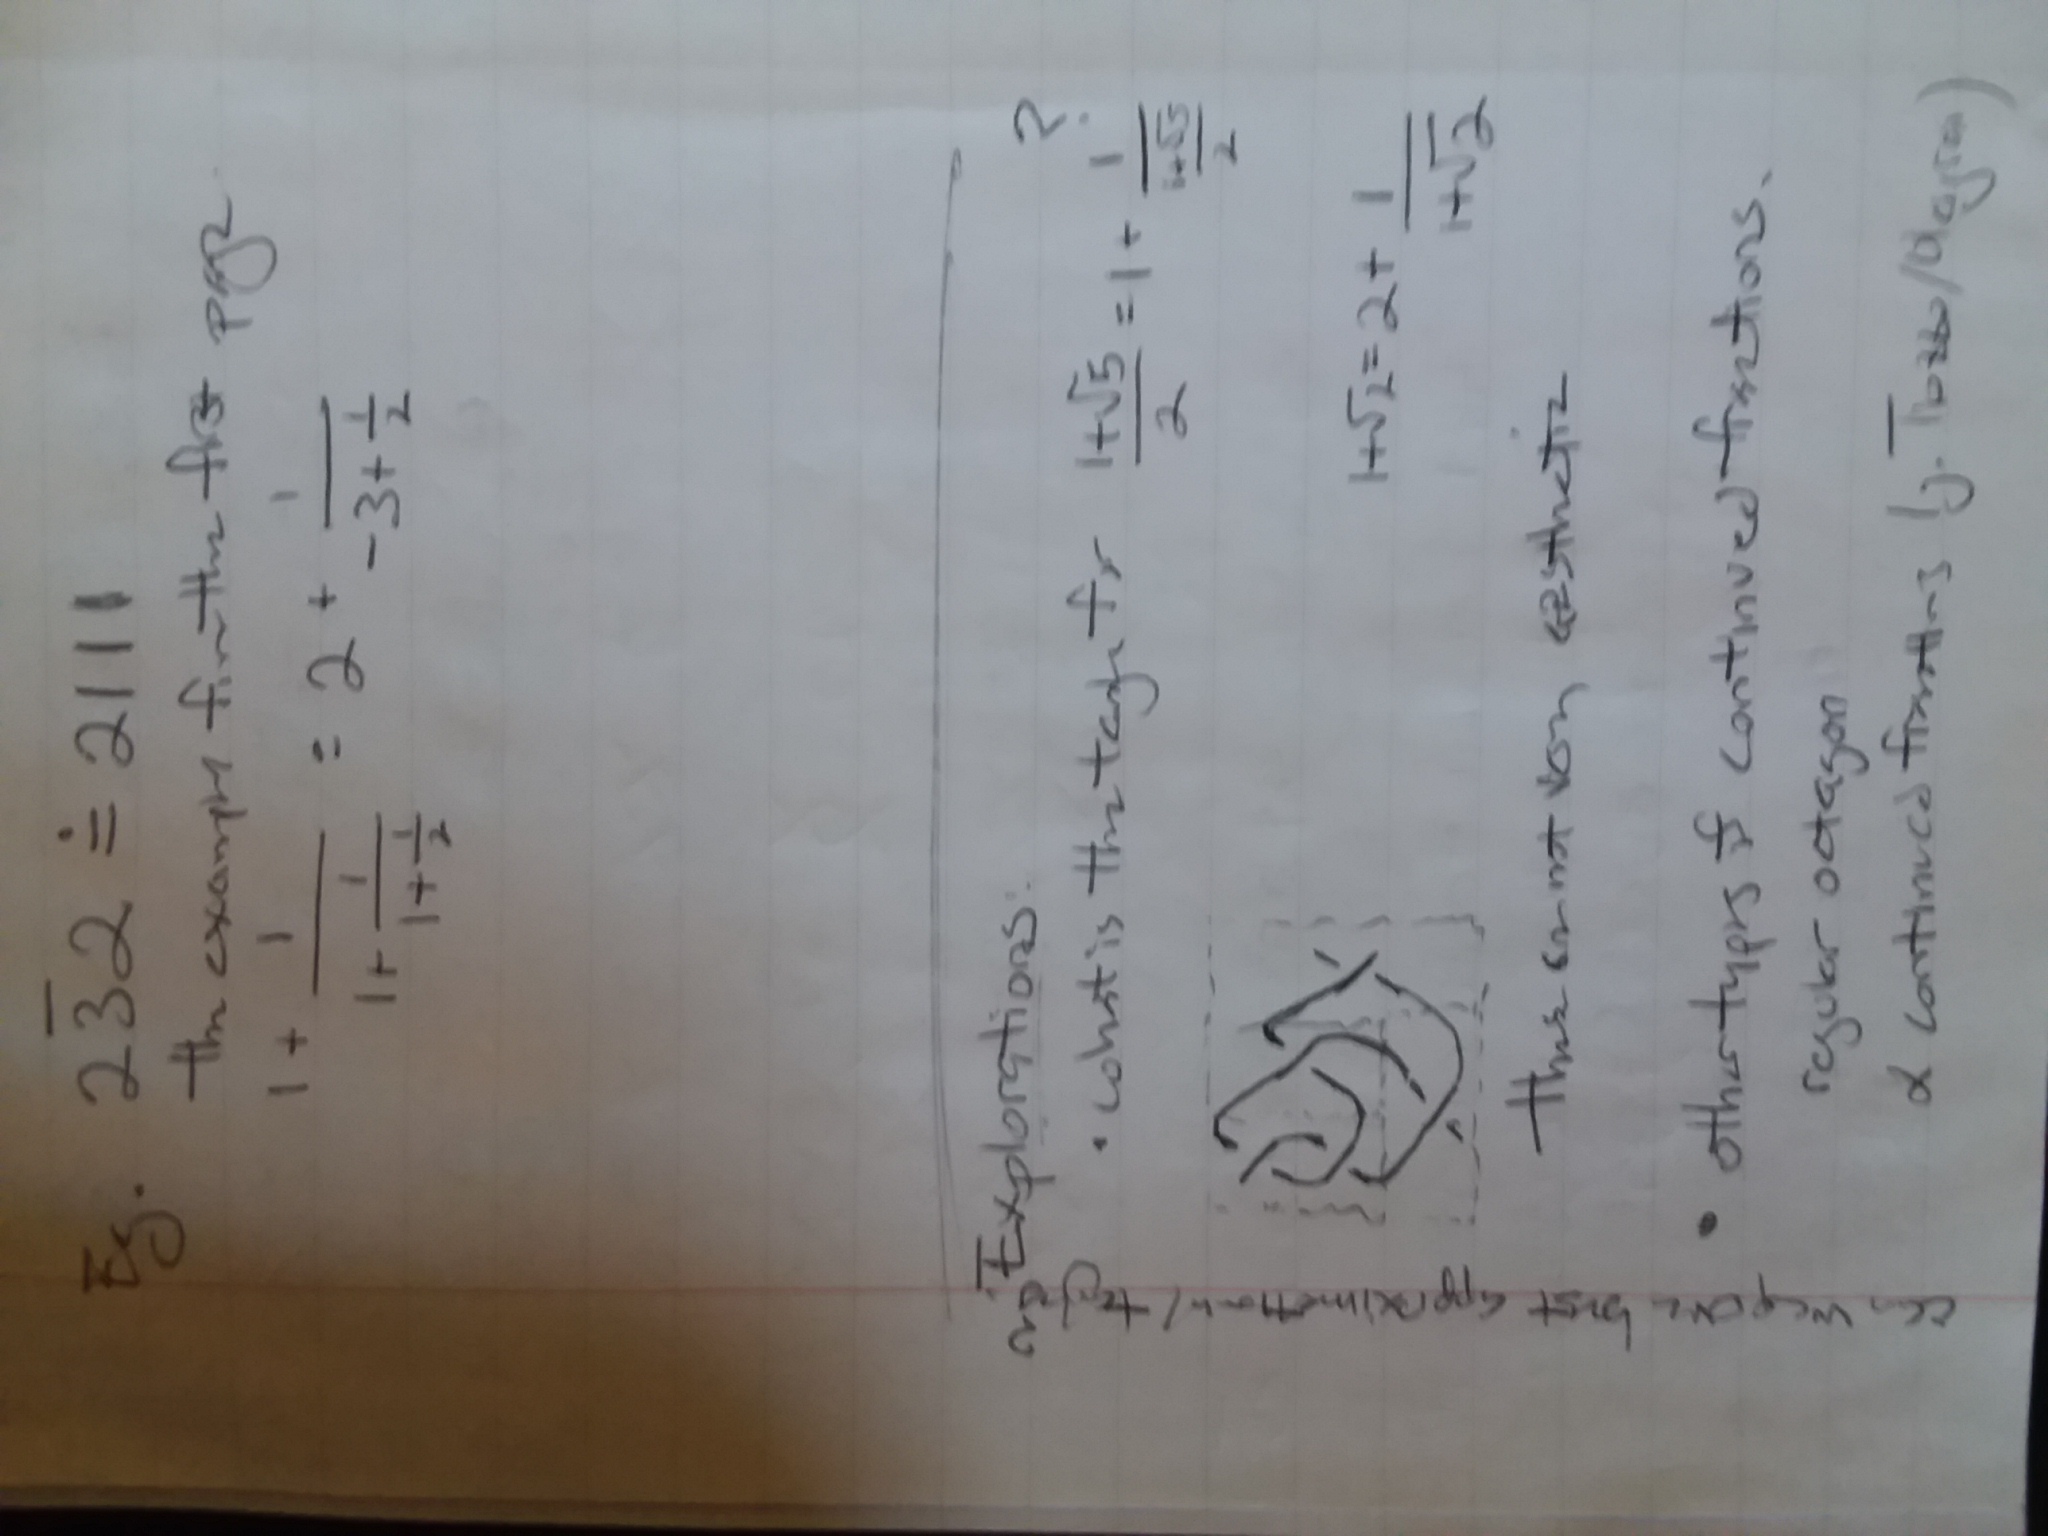 Eg. 2 3̅ 2 ≐ 2 1 1 1
the example from the first page
1 + 1/(1 + 1/(1 + 1/2)) = 2 + 1/(-3 + 1/2)
Explorations:
• what is the tangle for (1+√5)/2 = 1 + 1/((1+√5)/2) ?
1+√2 = 2 + 1/(1+√2)
these are not very aesthetic
• other types of continued fractions.
regular octagon
α continued fractions (j. Tozzo/
approximation